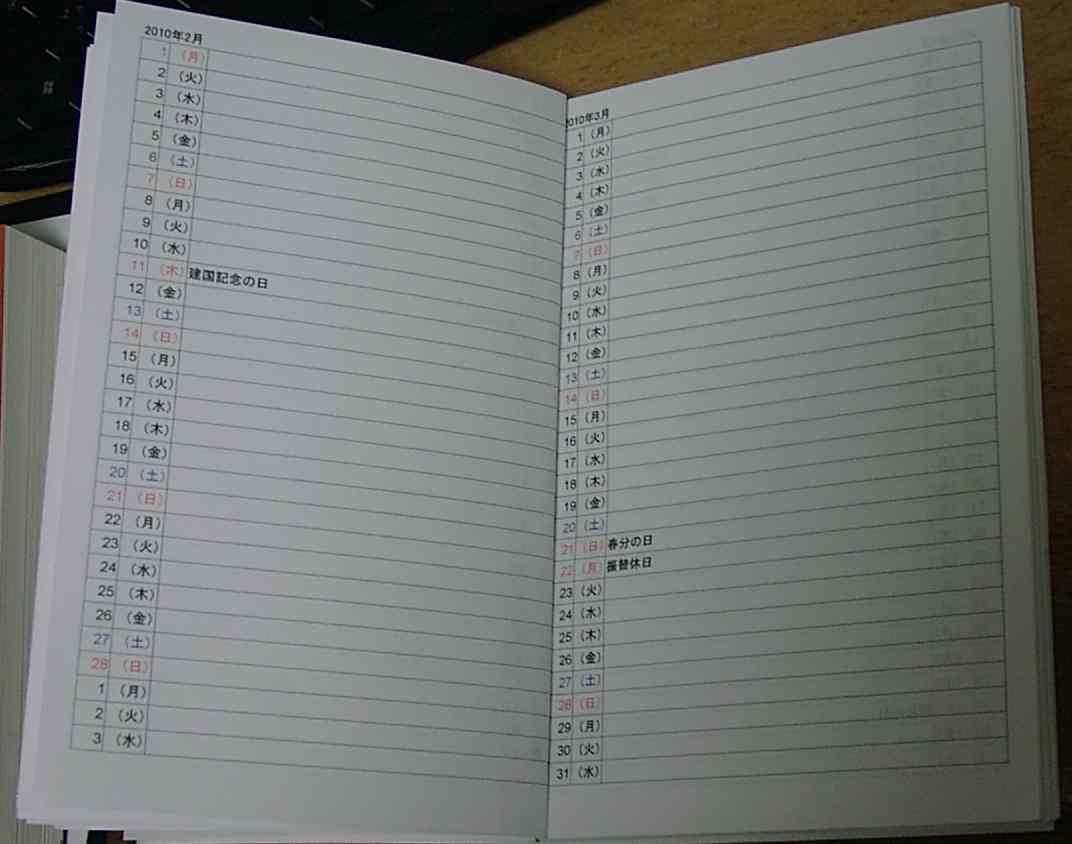 2010年2月
1 (月)
2 (火)
3 (水)
4 (木)
5 (金)
6 (土)
7 (日)
8 (月)
9 (火)
10 (水)
11 (木) 建国記念の日
12 (金)
13 (土)
14 (日)
15 (月)
16 (火)
17 (水)
18 (木)
19 (金)
20 (土)
21 (日)
22 (月)
23 (火)
24 (水)
25 (木)
26 (金)
27 (土)
28 (日)
1 (月)
2 (火)
3 (水)
2010年3月
1 (月)
2 (火)
3 (水)
4 (木)
5 (金)
6 (土)
7 (日)
8 (月)
9 (火)
10 (水)
11 (木)
12 (金)
13 (土)
14 (日)
15 (月)
16 (火)
17 (水)
18 (木)
19 (金)
20 (土)
21 (日) 春分の日
22 (月) 振替休日
23 (火)
24 (水)
25 (木)
26 (金)
27 (土)
28 (日)
29 (月)
30 (火)
31 (水)